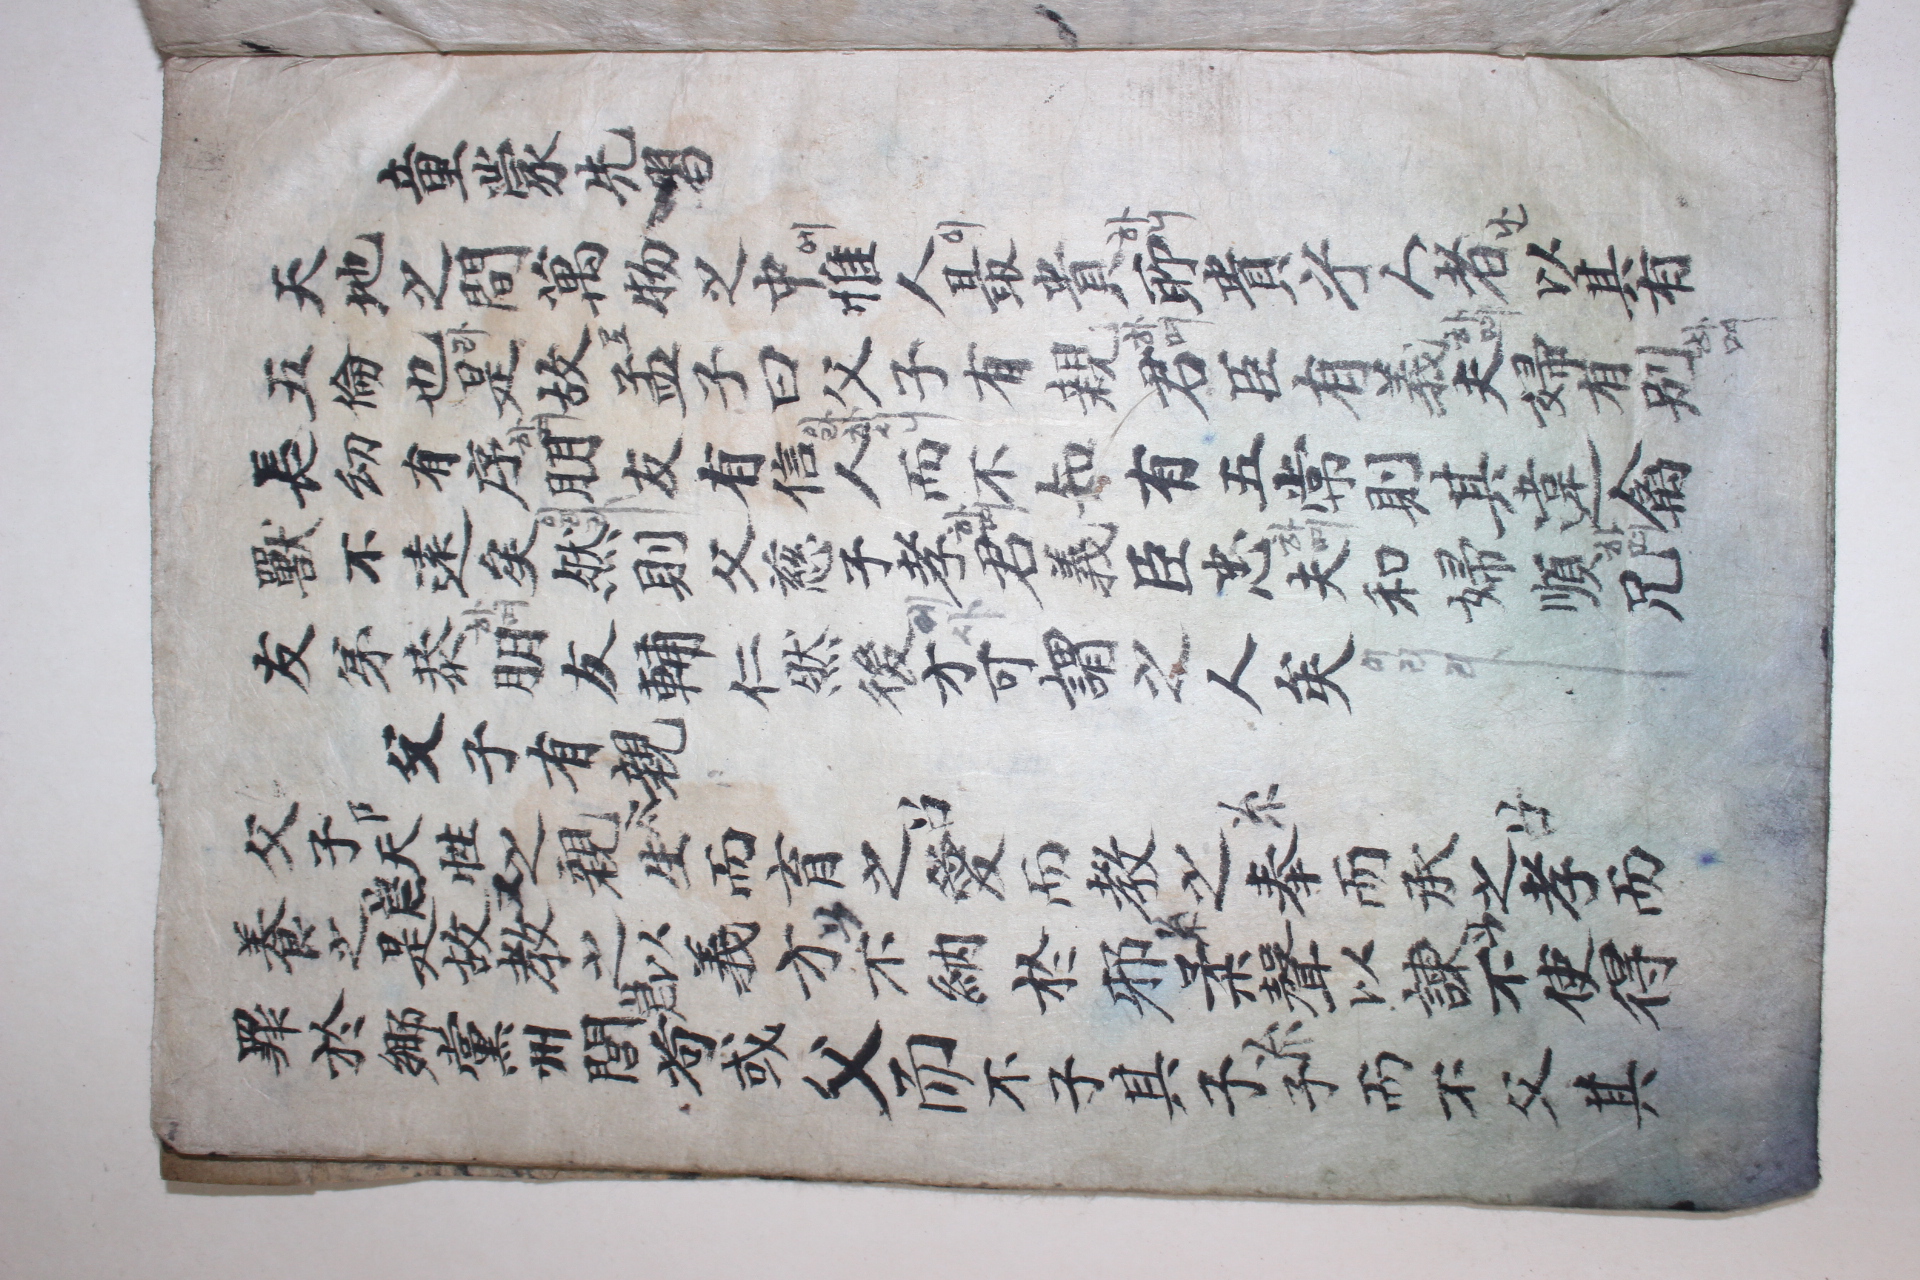 童蒙先習
天地之間萬物之中에惟人이最貴하니所貴乎人者난以其有
五倫也라是故로孟子曰父子有親하며君臣有義하며夫婦有別하며
長幼有序하며朋友有信人而不知有五常則其違禽
獸不遠矣然則父慈子孝하며君義臣忠하며夫和婦順하며兄
友弟恭하며朋友輔仁然後에사才可謂之人矣이리라
父子有親
父子卩天性之親生而育之愛而教之奉而承之孝而
養之是故教之以義方不納於邪柔聲以諫不使得
罪於鄕黨州閭苟或父而不子其子子而不父其